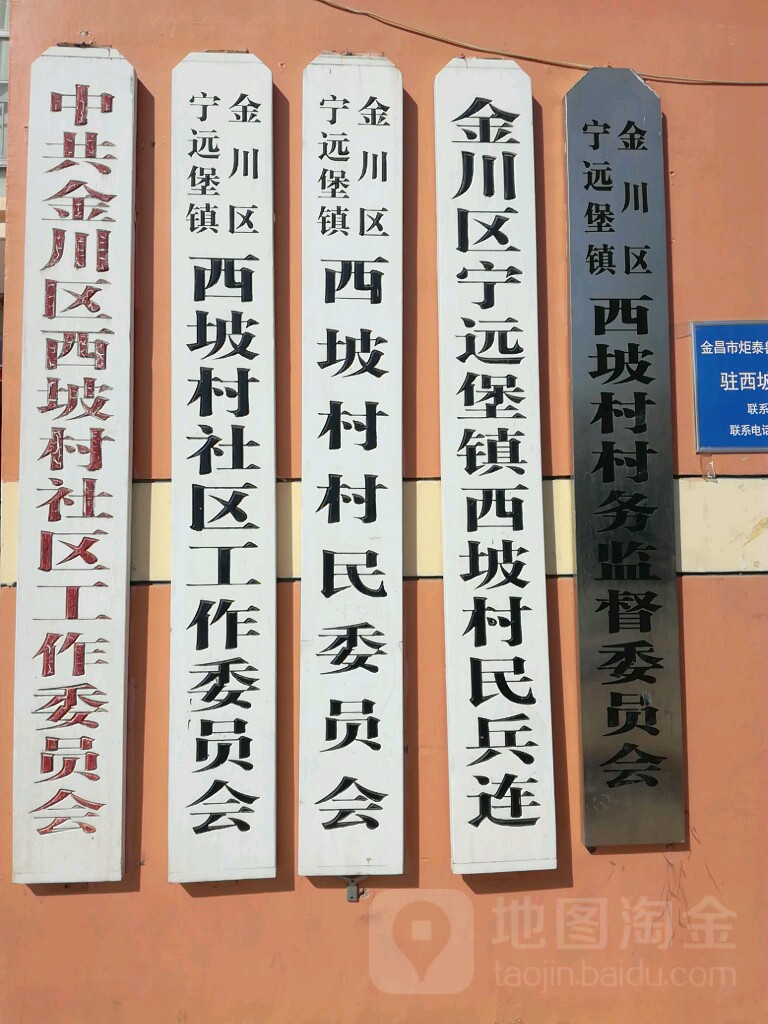 中共金川区西坡村社区工作委员会
金川区
宁远堡镇
西坡村社区工作委员会
金川区
宁远堡镇
西坡村村民委员会
金川区宁远堡镇西坡村民兵连
金川区
宁远堡镇
西坡村村务监督委员会
金昌市炬泰
驻西坡
联系
联系电话
地图淘金
taojin.baidu.com